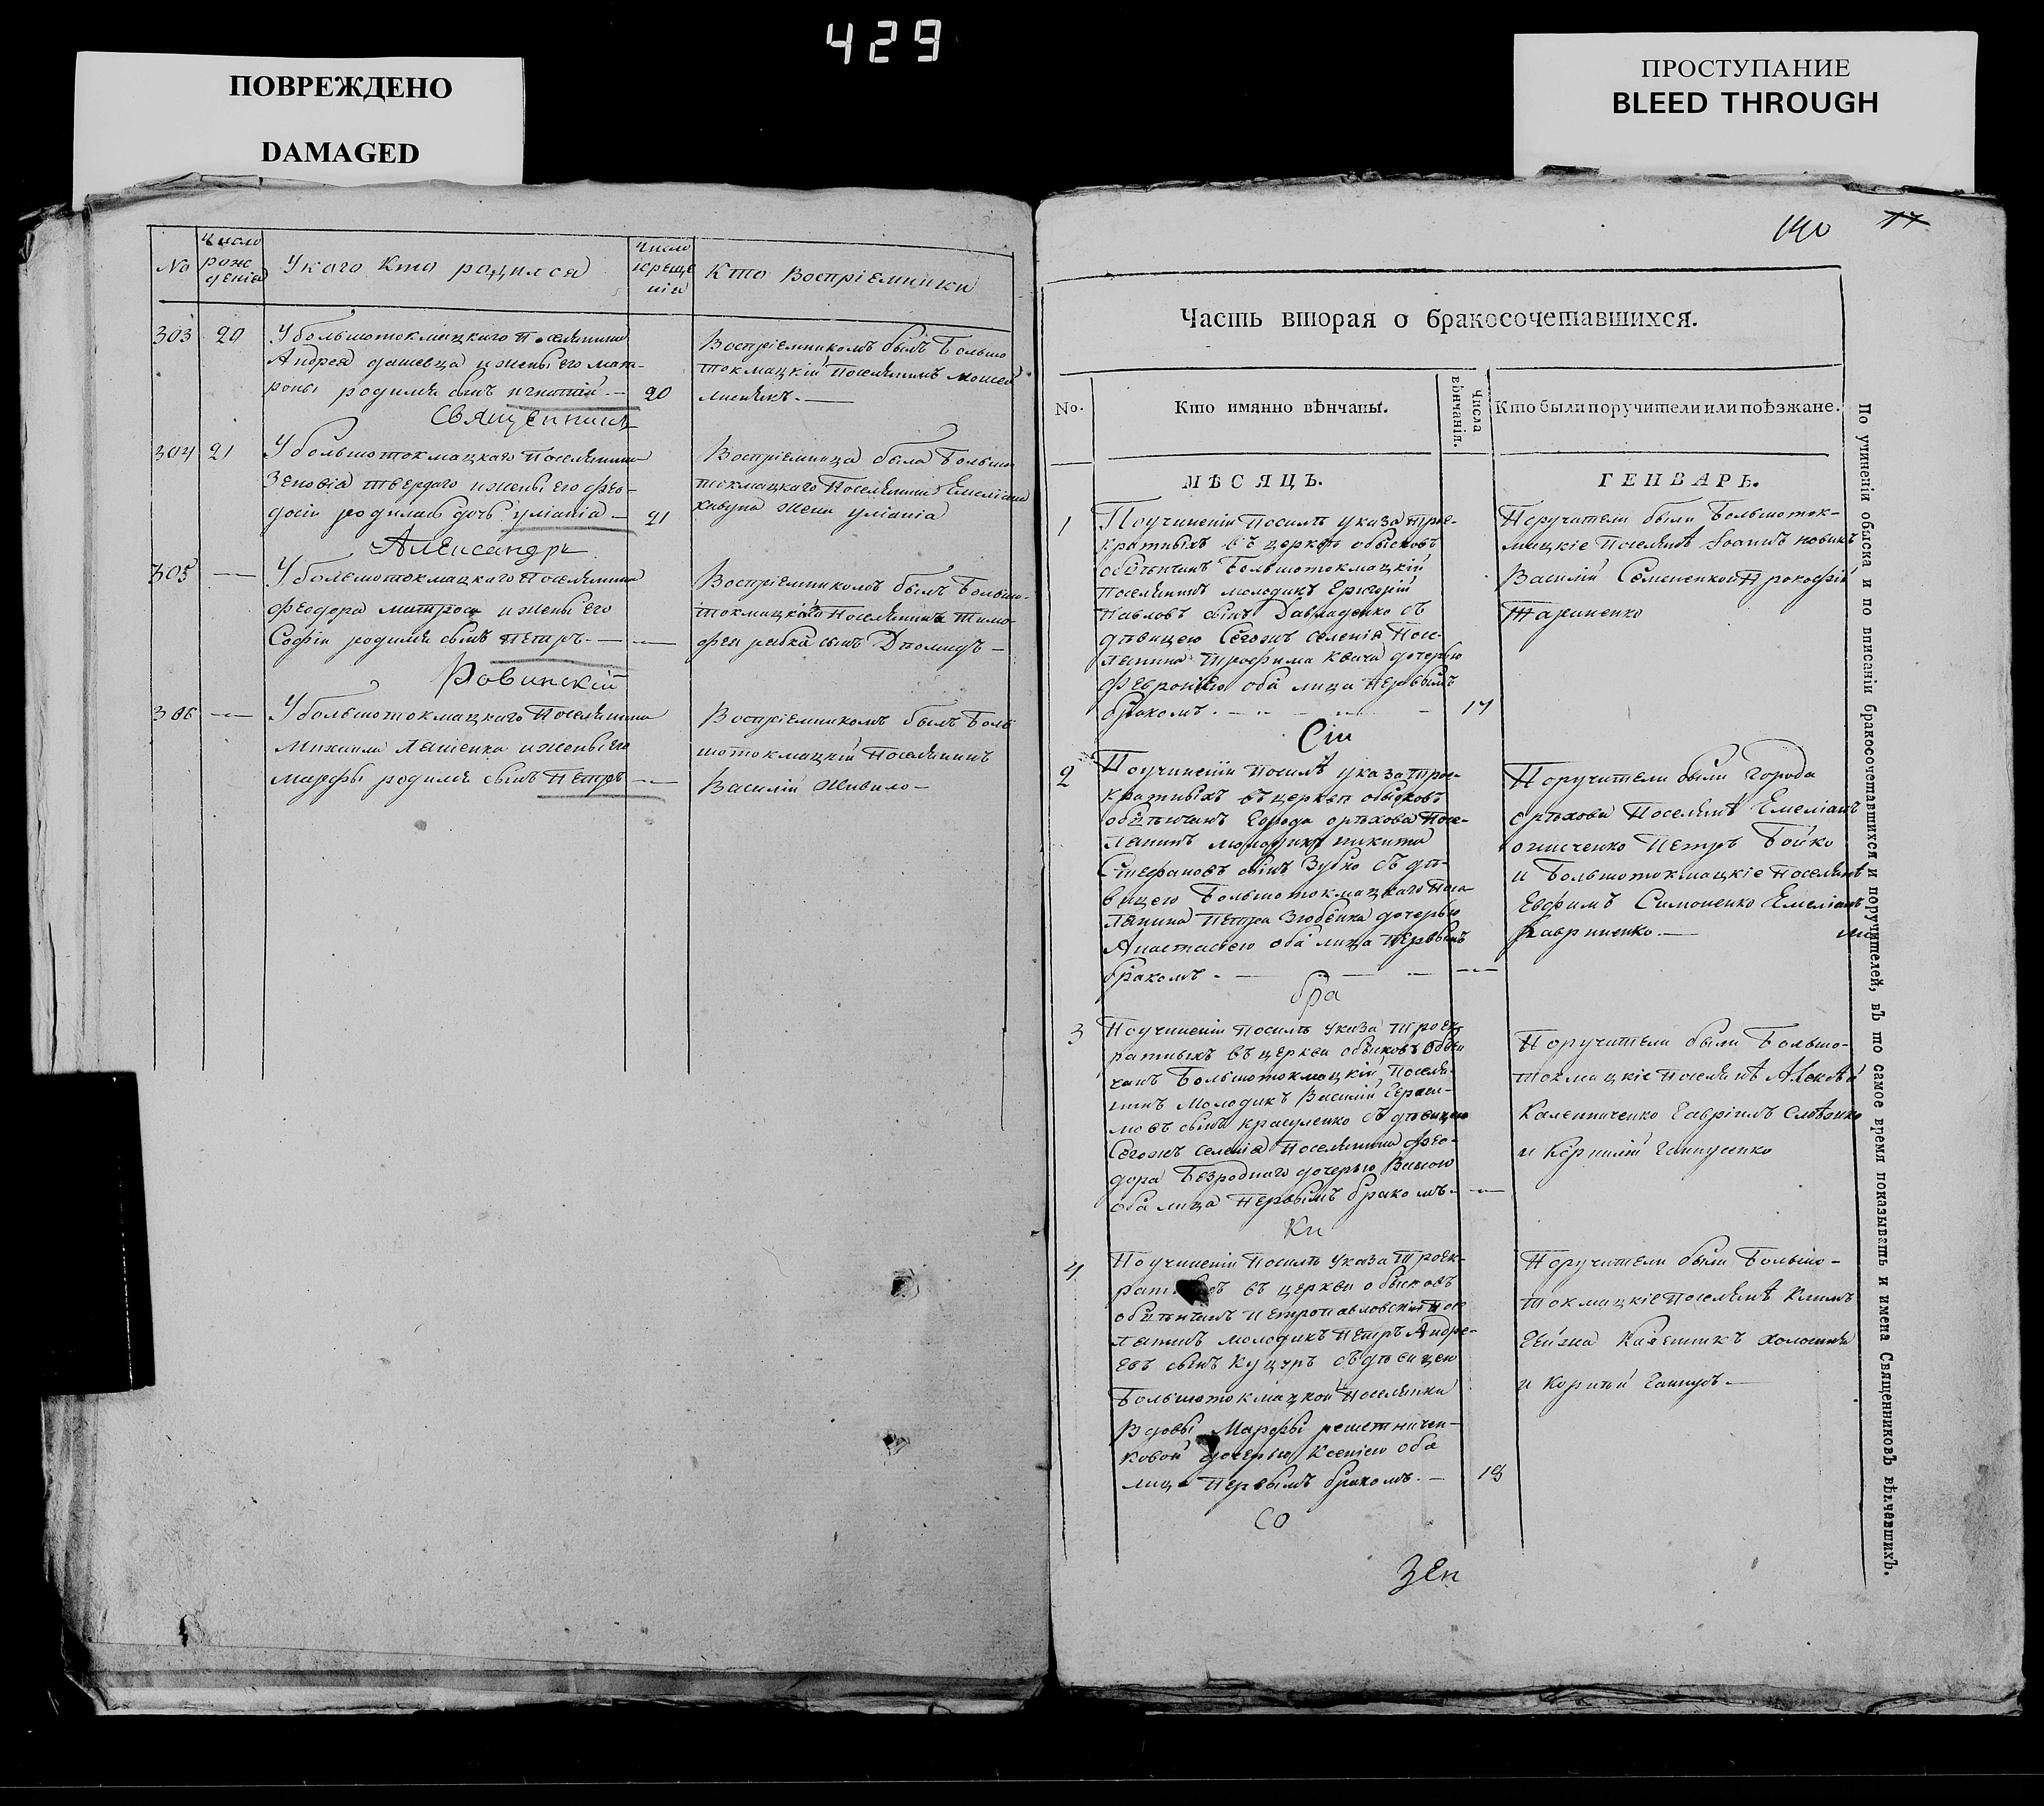 429
ПОВРЕЖДЕНО
DAMAGED
ПРОСТУПАНИЕ
BLEED THROUGH
No
Число рожденія
Укого Кто родился
Число крещенія
Кто Воспріемники
303
20
Убольшотокмацкаго Поселянина
Андрея дашевца ижены его мат-
роны родился сынъ игнатій —
20
Воспріемникомъ былъ Больше
токмацкій Поселянинъ
Священникъ
304
21
Убольшотокмацкаго Поселянина
Зеновіа твердаго ижены его фео-
досіи родилась дочь уліанія —
21
Воспріемница была Больше
токмацкаго Поселянина Емеліана
жена уліанія
Александръ
305
—
Убольшотокмацкаго Поселянина
феодора митроса ижены его
Софіи родился сынъ петръ —
—
Воспріемникомъ былъ Больше-
токмацкаго Поселянина тимо-
фея рябка сынъ
Равинскій
306
—
Убольшотокмацкаго Поселянина
Михаила ляшенка ижены его
Марфы родился сынъ Петръ —
Воспріемникомъ былъ Боль
шотокмацкій Поселянинъ
Василій Шивило —
140
77
Часть вторая о бракосочетавшихся.
No.
Кто имянно вѣнчаны.
Числа вѣнчанія.
Кто были поручители или поѣзжане.
МѢСЯЦЪ.
ГЕНВАРЬ.
1
Поучиненіи Посилѣ указа трое-
кратныхъ въ церкви обысковъ
обвѣнчанъ Большотокмацкій
поселянинъ молодикъ Григорій
Павловъ сынъ съ
дѣвицею Сегожъ селенія Посе-
лянина трофима Квача дочерью
Феврониею оба лица Первымъ
бракомъ. —
17
Поручители были Большоток-
мацкіе Поселянѣ Іоаннъ новикъ
Василій Семененкой Прокофій
Тараненко
Сіи
2
Поучиненіи посилѣ указа трое-
кратныхъ въ церкви обысковъ
обвѣнчанъ Города орѣхова Посе-
лянинъ молодикъ никита
Стефановъ сынъ Зубко съ дѣ-
вицею Большотокмацкаго Посе
лянина Петра Зюбенка дочерью
Анастасіею оба лица Первымъ
бракомъ. —
Поручители были Города
орѣхова Поселянѣ Емеліанъ
Петръ Бойко
и Большотокмацкіе поселянѣ
Евфимъ Симоненко Емеліанъ
Гавриленко. —
бра
3
Поучиненіи Посилѣ указа троек
ратныхъ въ церкви обысковъ обвен
чанъ Большотокмацкій Поселя-
нинъ Молодикъ Василій Гераси-
мовъ сынъ красуленко съ дѣвицею
Сегожъ селенія Поселянина фео-
дора Безроднаго дочерью
оба лица Первымъ бракомъ. —
Поручители были Больше-
токмацкіе поселянѣ Алексѣй
Калениченко Гавріилъ
и Корнилій
Ки
4
Поучиненіи посилѣ указа троек-
въ церкви обысковъ
обвѣнчанъ Петропавловскій Посе
лянинъ молодикъ Петръ Андре-
евъ сынъ Куцуръ съ дѣвицею
Большотокмацкой Поселянки
Вдовы Марфы решетничен-
ковой дочерью Ксеніею оба
лица Первымъ бракомъ. —
18
Поручители были Больше-
токмацкіе Поселянѣ Климъ
и Корнѣй
СО
Зен
По учиненіи обыска и по вписаніи бракосочетавшихся и поручителей, въ то самое время показывать и имена Священниковъ вѣнчавшихъ.